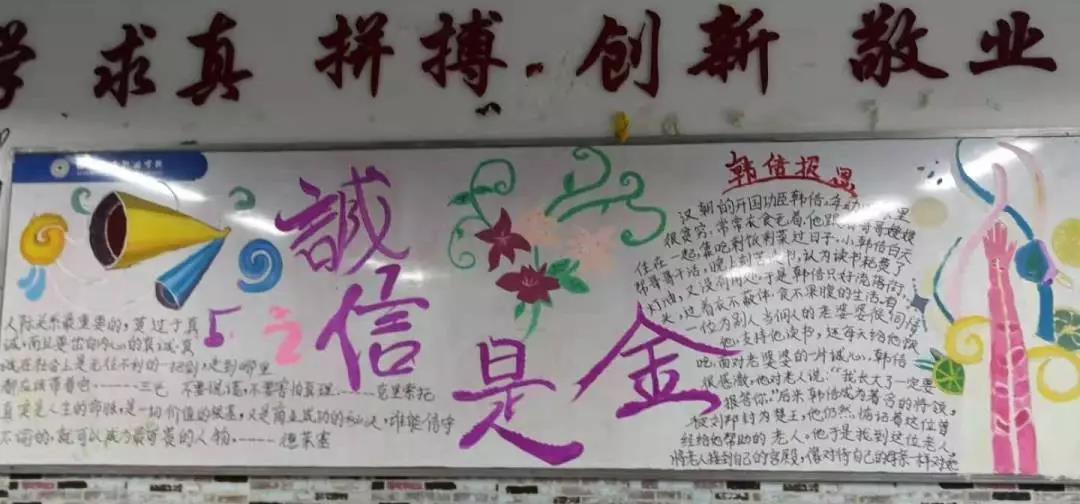 求真 拼搏 创新 敬业
誠
信
是
金
人际关系最重要的，莫过于真
诚，而且要出自内心的真诚。真
诚在社会上是无往不利的一把剑，走到哪里
都应该带着它……三毛 不要说谎，不要害怕真理……
真实是人生的命脉，是一切价值的根基，又是商业成功的秘诀，谁能信守
不渝的，就可以成为最可贵的人物，……德莱塞
韩信报恩
汉朝的开国功臣韩信，
很贫穷，常常衣食无着，他跟
住在一起，靠吃剩饭剩菜过日子。小韩信白天
帮哥哥干活，晚上刻苦 书，认为读书耗费了
灯油，又没有用处，于是韩信只好流落街
头，过着衣不蔽体，食不果腹的生活。有
一位为别人当佣人的老婆婆很同情
他，支持他读书，还每天给他饭
吃。面对老婆婆的一片诚心，韩信
很感激，他对老人说：“我长大了一定要
报答你。”后来韩信成为著名的将领，
被刘邦封为楚王，他仍然惦记着这位曾
经给他帮助的老人。他于是找到这位老人，
将老人接到自己的宫殿，像对待自己的母亲一样对她